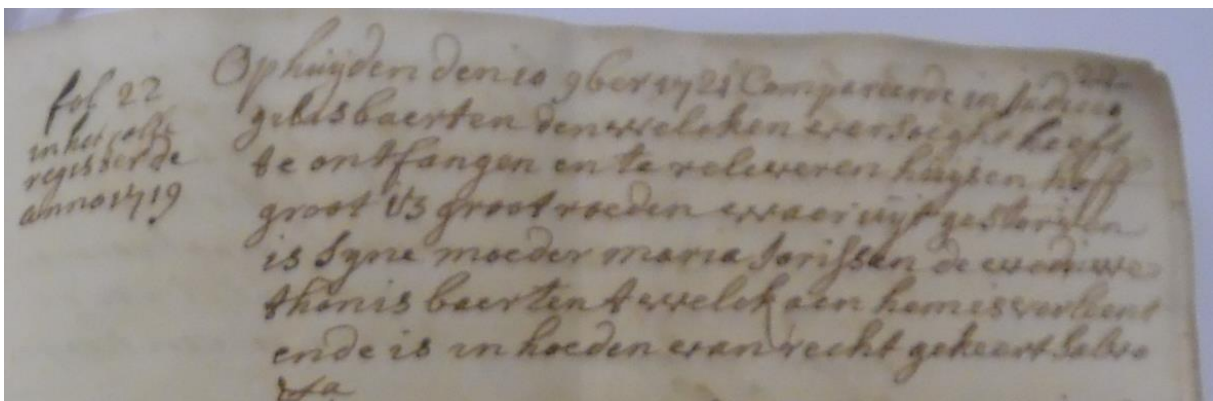 fol 22
in het rolle
register de
anno 1719
Op huijden den 10 9ber 1721 Compareerde in Judicio
gelis baerten den welcken versoeght heeft
te ontfangen en te releveren huijsen hoff
groot 15 groot roeden waer uijt gestorven
is syne moeder maria Jorissen de weduwe
thonis baerten t welck aen hem is verleent
ende is in hoeden van recht gekeert salvo